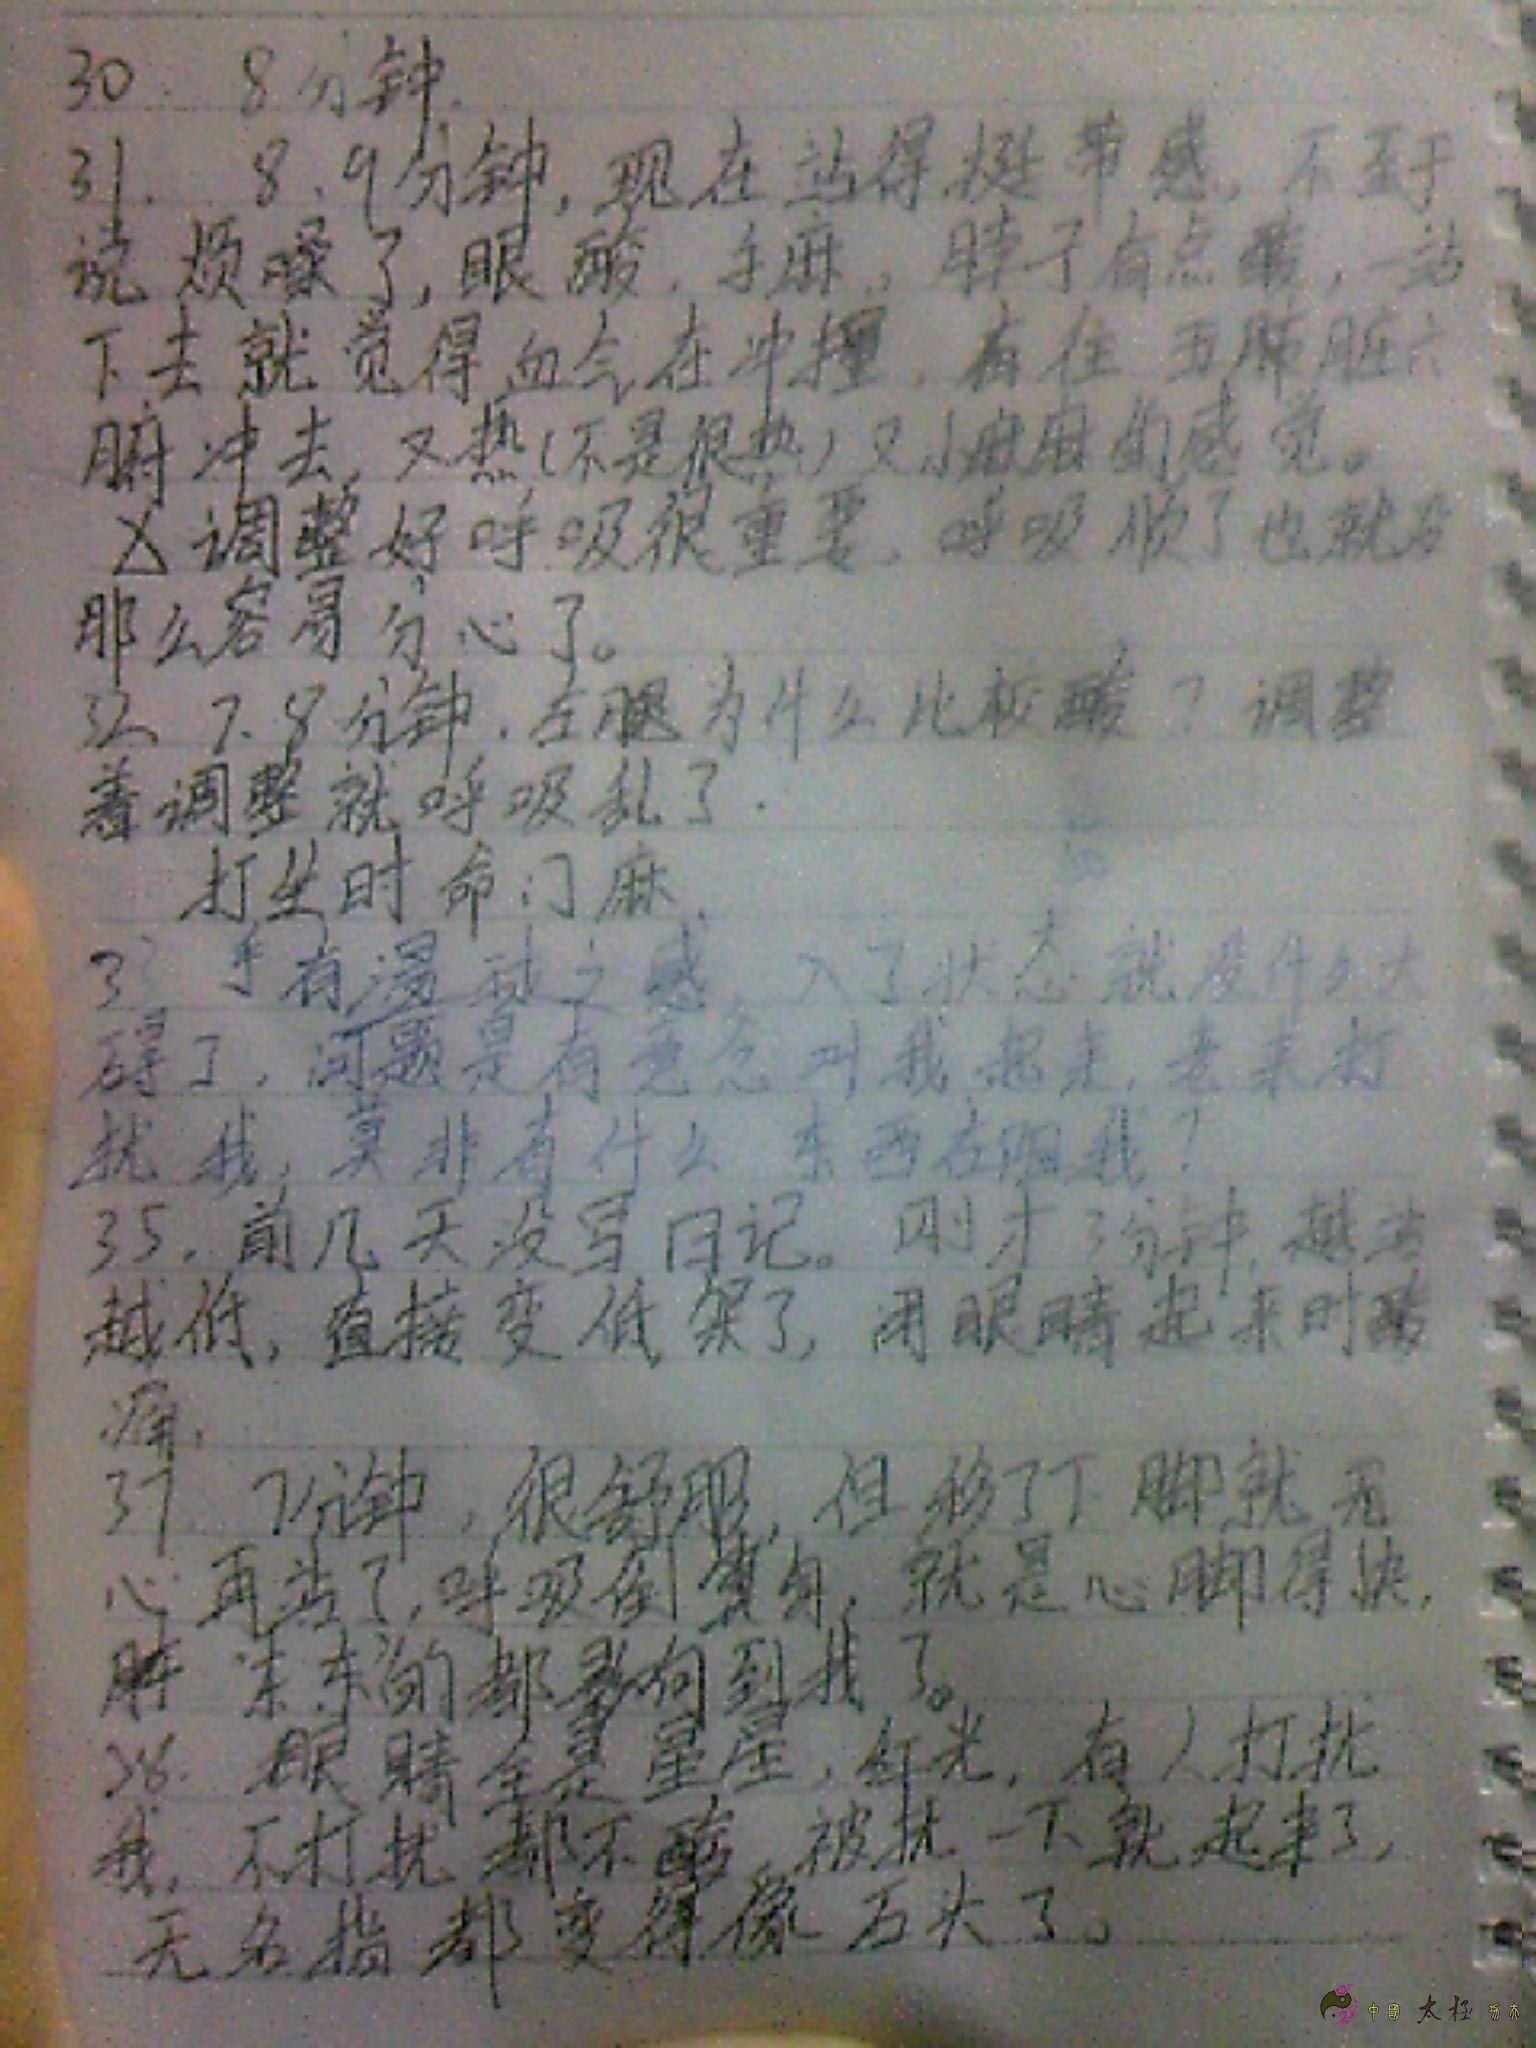 30. 8分钟.
31. 8.9分钟,现在站得挺带感。不至于
说烦噪了,眼酸.手麻。脖子有点酸,一站
下去就觉得血气在冲撞.有往五肺脏六
腑冲去,又热(不是很热)又小麻麻的感觉。
调整好呼吸很重要,呼吸顺了也就没
那么容易分心了。
32. 7.8分钟.左腿为什么比较酸?调整
着调整就呼吸乱了.
打坐时命门麻.
33 手有漫动之感,入了状态就没什么大
碍了,问题是有意念叫我起来,老来打
扰我,莫非有什么东西在阻我?
35.前几天没写日记。刚才3分钟,越站
越低,直接变低架了,用眼睛起来时酸
痛.
37. 7分钟,很舒服,但移了下脚就无
心再站了,呼吸倒算匀,就是心脚得快,
的都到我了。
36. 眼睛全是星星,红光,有人打扰
我,不打扰都不酸,被扰一下就起来了,
无名指都变得像石头了。
中國 太極